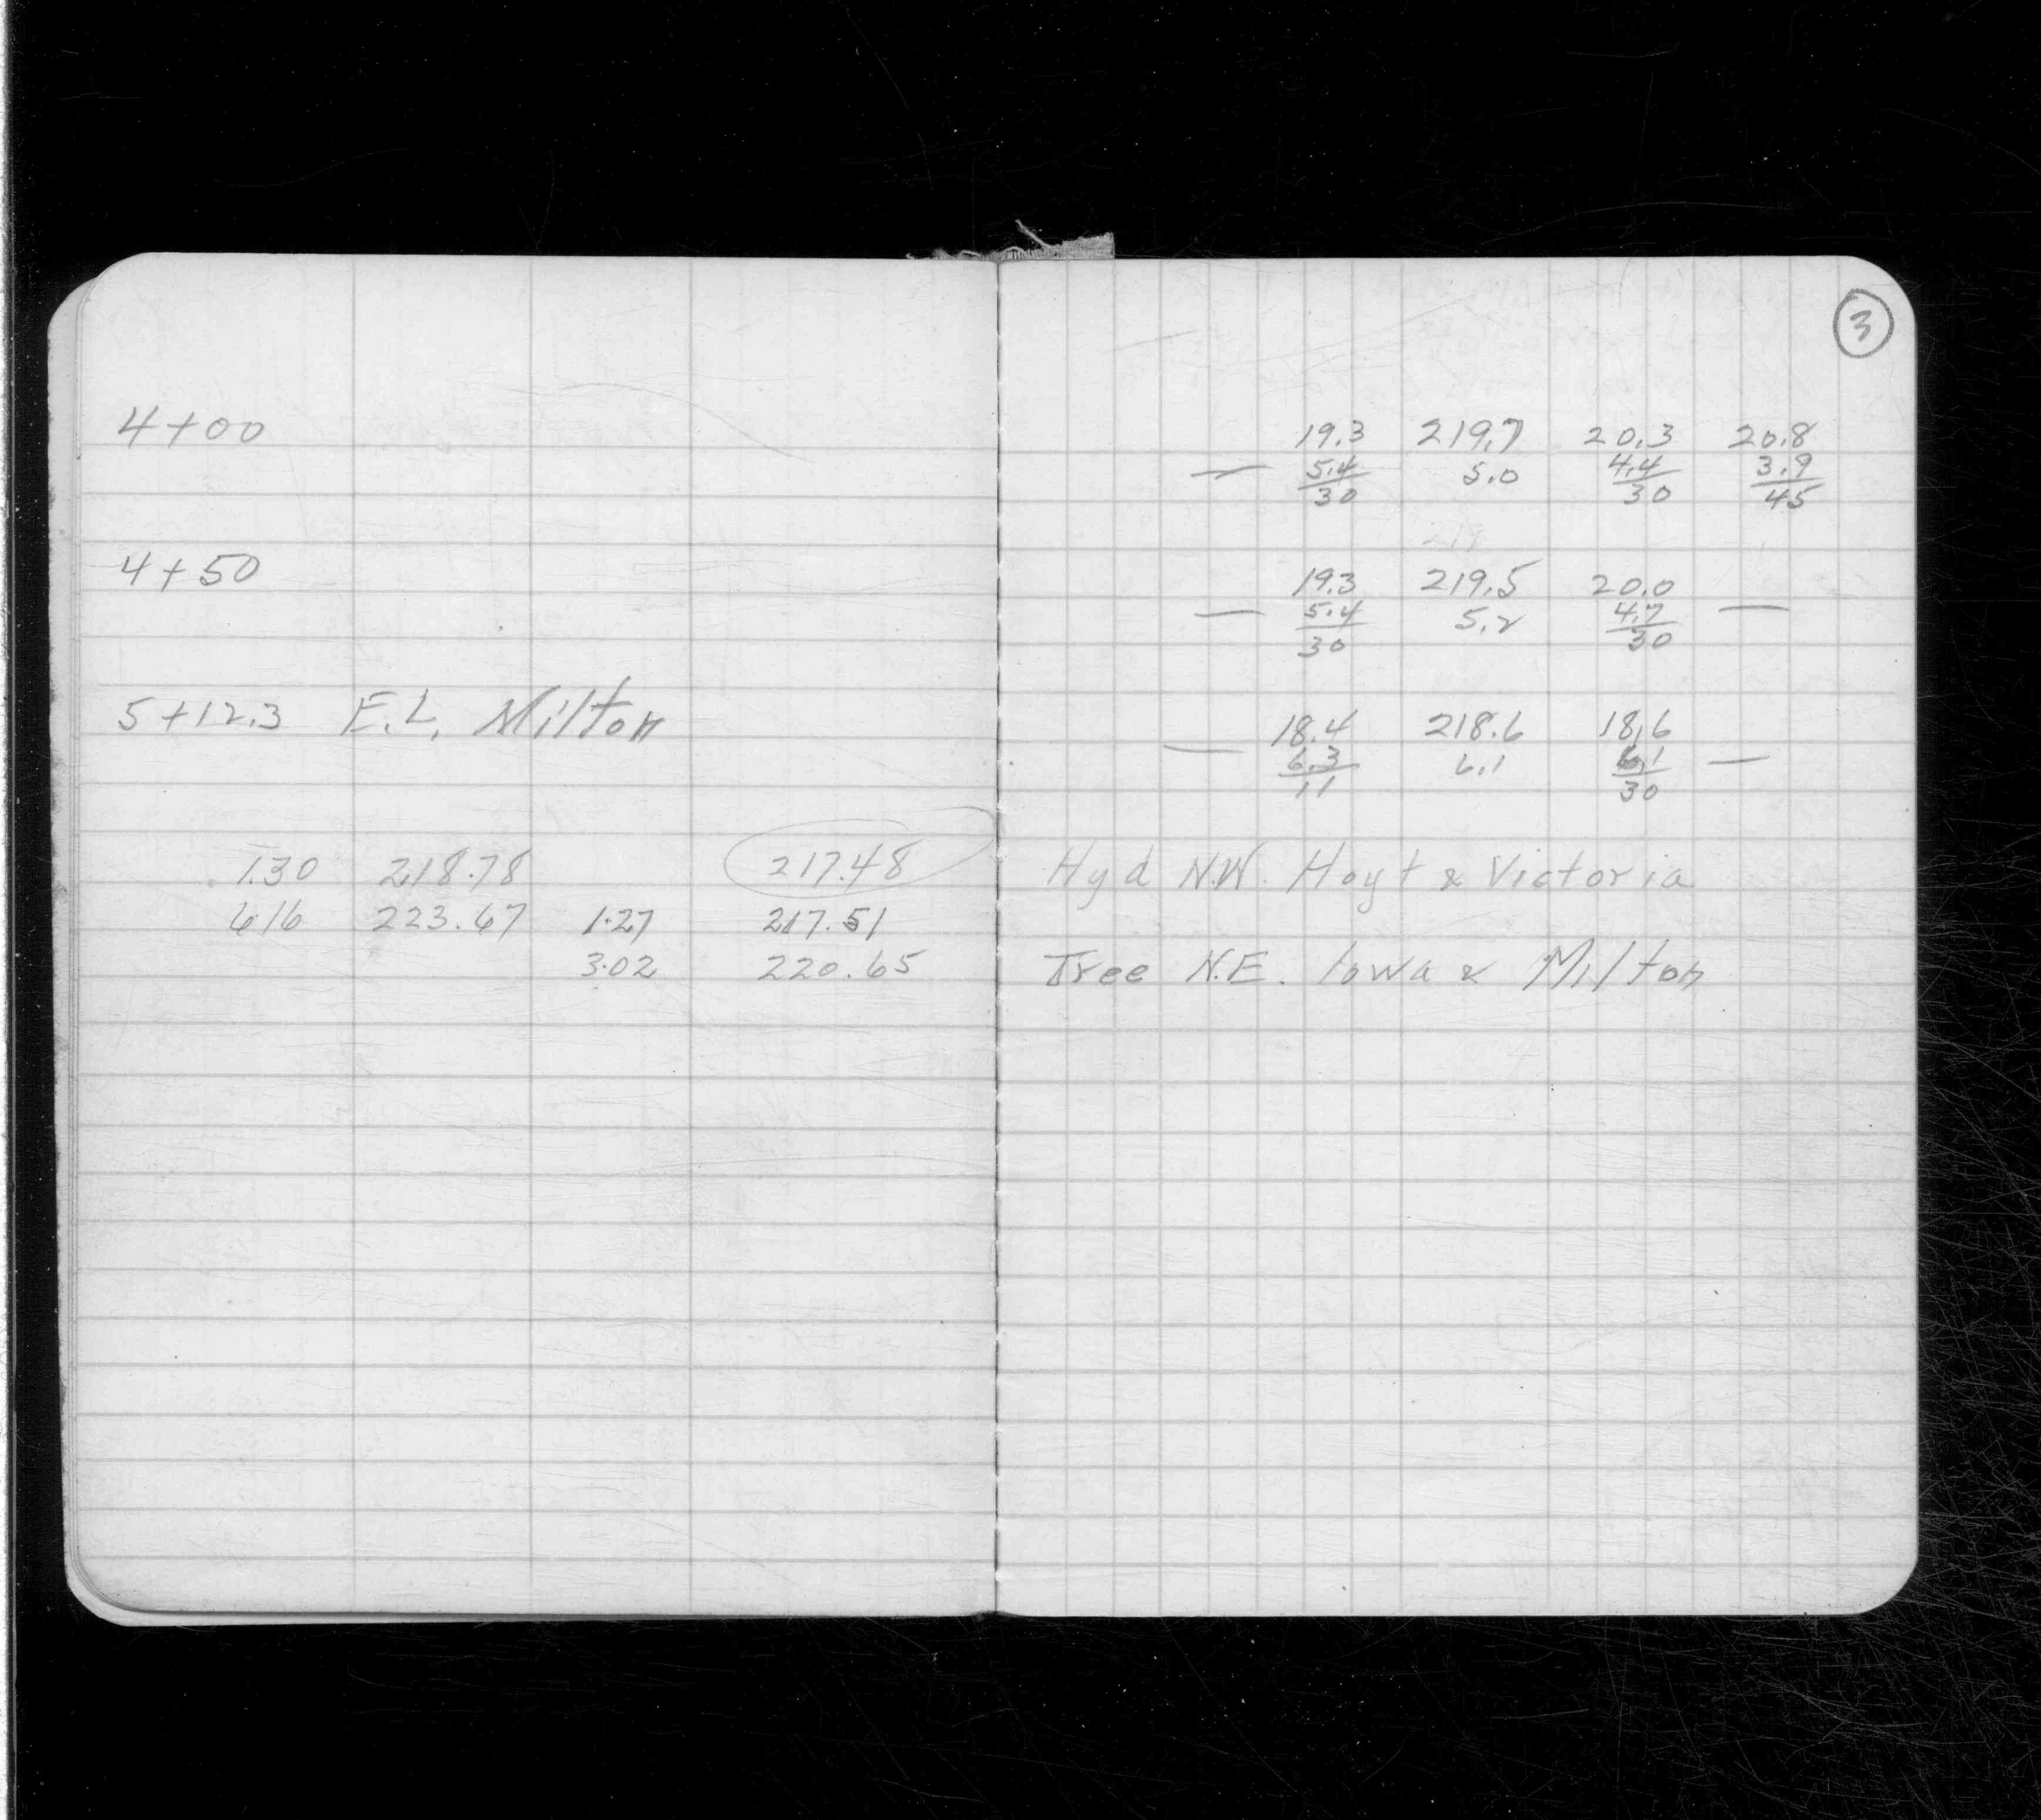 3
4+00 19.3 219.7 20.3 20.8
— 5.4 5.0 4.4 3.9
30 30 45
219
4+50 19.3 219.5 20.0
— 5.4 5.2 4.7 —
30 30
5+12.3 E.L. Milton 18.4 218.6 18.6
— 6.3 6.1 6.1 —
11 30
1.30 218.78 217.48 Hyd N.W. Hoyt & Victoria
6.16 223.67 1.27 217.51
3.02 220.65 Tree N.E. Iowa & Milton